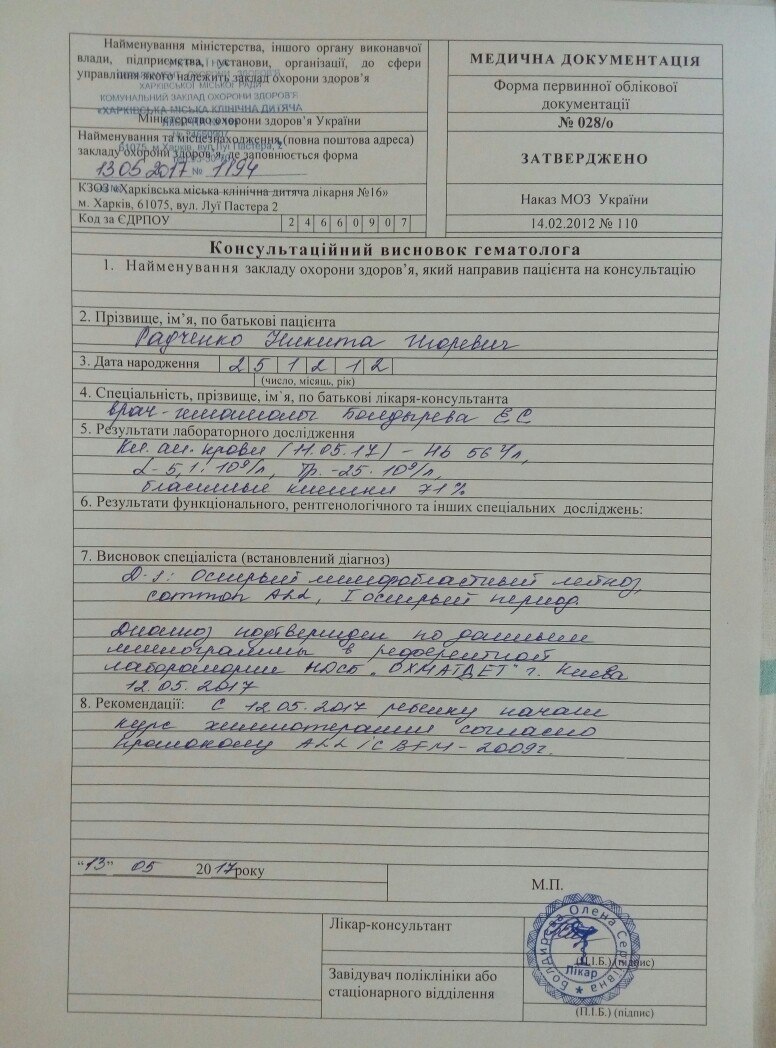 Найменування міністерства, іншого органу виконавчої
влади, підприємства, установи, організації, до сфери
управління якого належить заклад охорони здоров’я
ХАРКІВСЬКОЇ МІСЬКОЇ РАДИ
КОМУНАЛЬНИЙ ЗАКЛАД ОХОРОНИ ЗДОРОВ'Я
«ХАРКІВСЬКА МІСЬКА КЛІНІЧНА ДИТЯЧА
Міністерство охорони здоров’я України
Найменування та місцезнаходження (повна поштова адреса)
закладу охорони здоров’я, де заповнюється форма
61075, м.Харків, вул.Луї Пастера, 2
13.05.2017 № 1194
КЗОЗ «Харківська міська клінічна дитяча лікарня №16»
м. Харків, 61075, вул. Луї Пастера 2
Код за ЄДРПОУ 2 4 6 6 0 9 0 7
МЕДИЧНА ДОКУМЕНТАЦІЯ
Форма первинної облікової
документації
№ 028/о
ЗАТВЕРДЖЕНО
Наказ МОЗ України
14.02.2012 № 110
Консультаційний висновок гематолога
1. Найменування закладу охорони здоров’я, який направив пацієнта на консультацію
2. Прізвище, ім’я, по батькові пацієнта
Радченко Никита Игоревич
3. Дата народження 2 5 1 2 1 2
(число, місяць, рік)
4. Спеціальність, прізвище, ім`я, по батькові лікаря-консультанта
врач-гематолог Болдырева ЕС
5. Результати лабораторного дослідження
Кл. ан. крови (11.05.17) – Нb 56 г/л,
L-5,1·10⁹/л, Тр. -25·10⁹/л,
бластные клетки 71%
6. Результати функціонального, рентгенологічного та інших спеціальних досліджень:
7. Висновок спеціаліста (встановлений діагноз)
D-s: Острый лимфобластный лейкоз,
common ALL, I острый период.
Диагноз подтвержден по данным
в референтной
лаборатории НДСБ "ОХМАТДЕТ" г. Киева
12.05.2017
8. Рекомендації: С 12.05.2017 ребенку начат
курс химиотерапии согласно
протоколу ALL IC BFM – 2009г.
“13” 05 2017року
М.П.
Лікар-консультант
(П.І.Б.) (підпис)
Болдирєва Олена Сергіївна
Лікар
Завідувач поліклініки або
стаціонарного відділення
(П.І.Б.) (підпис)